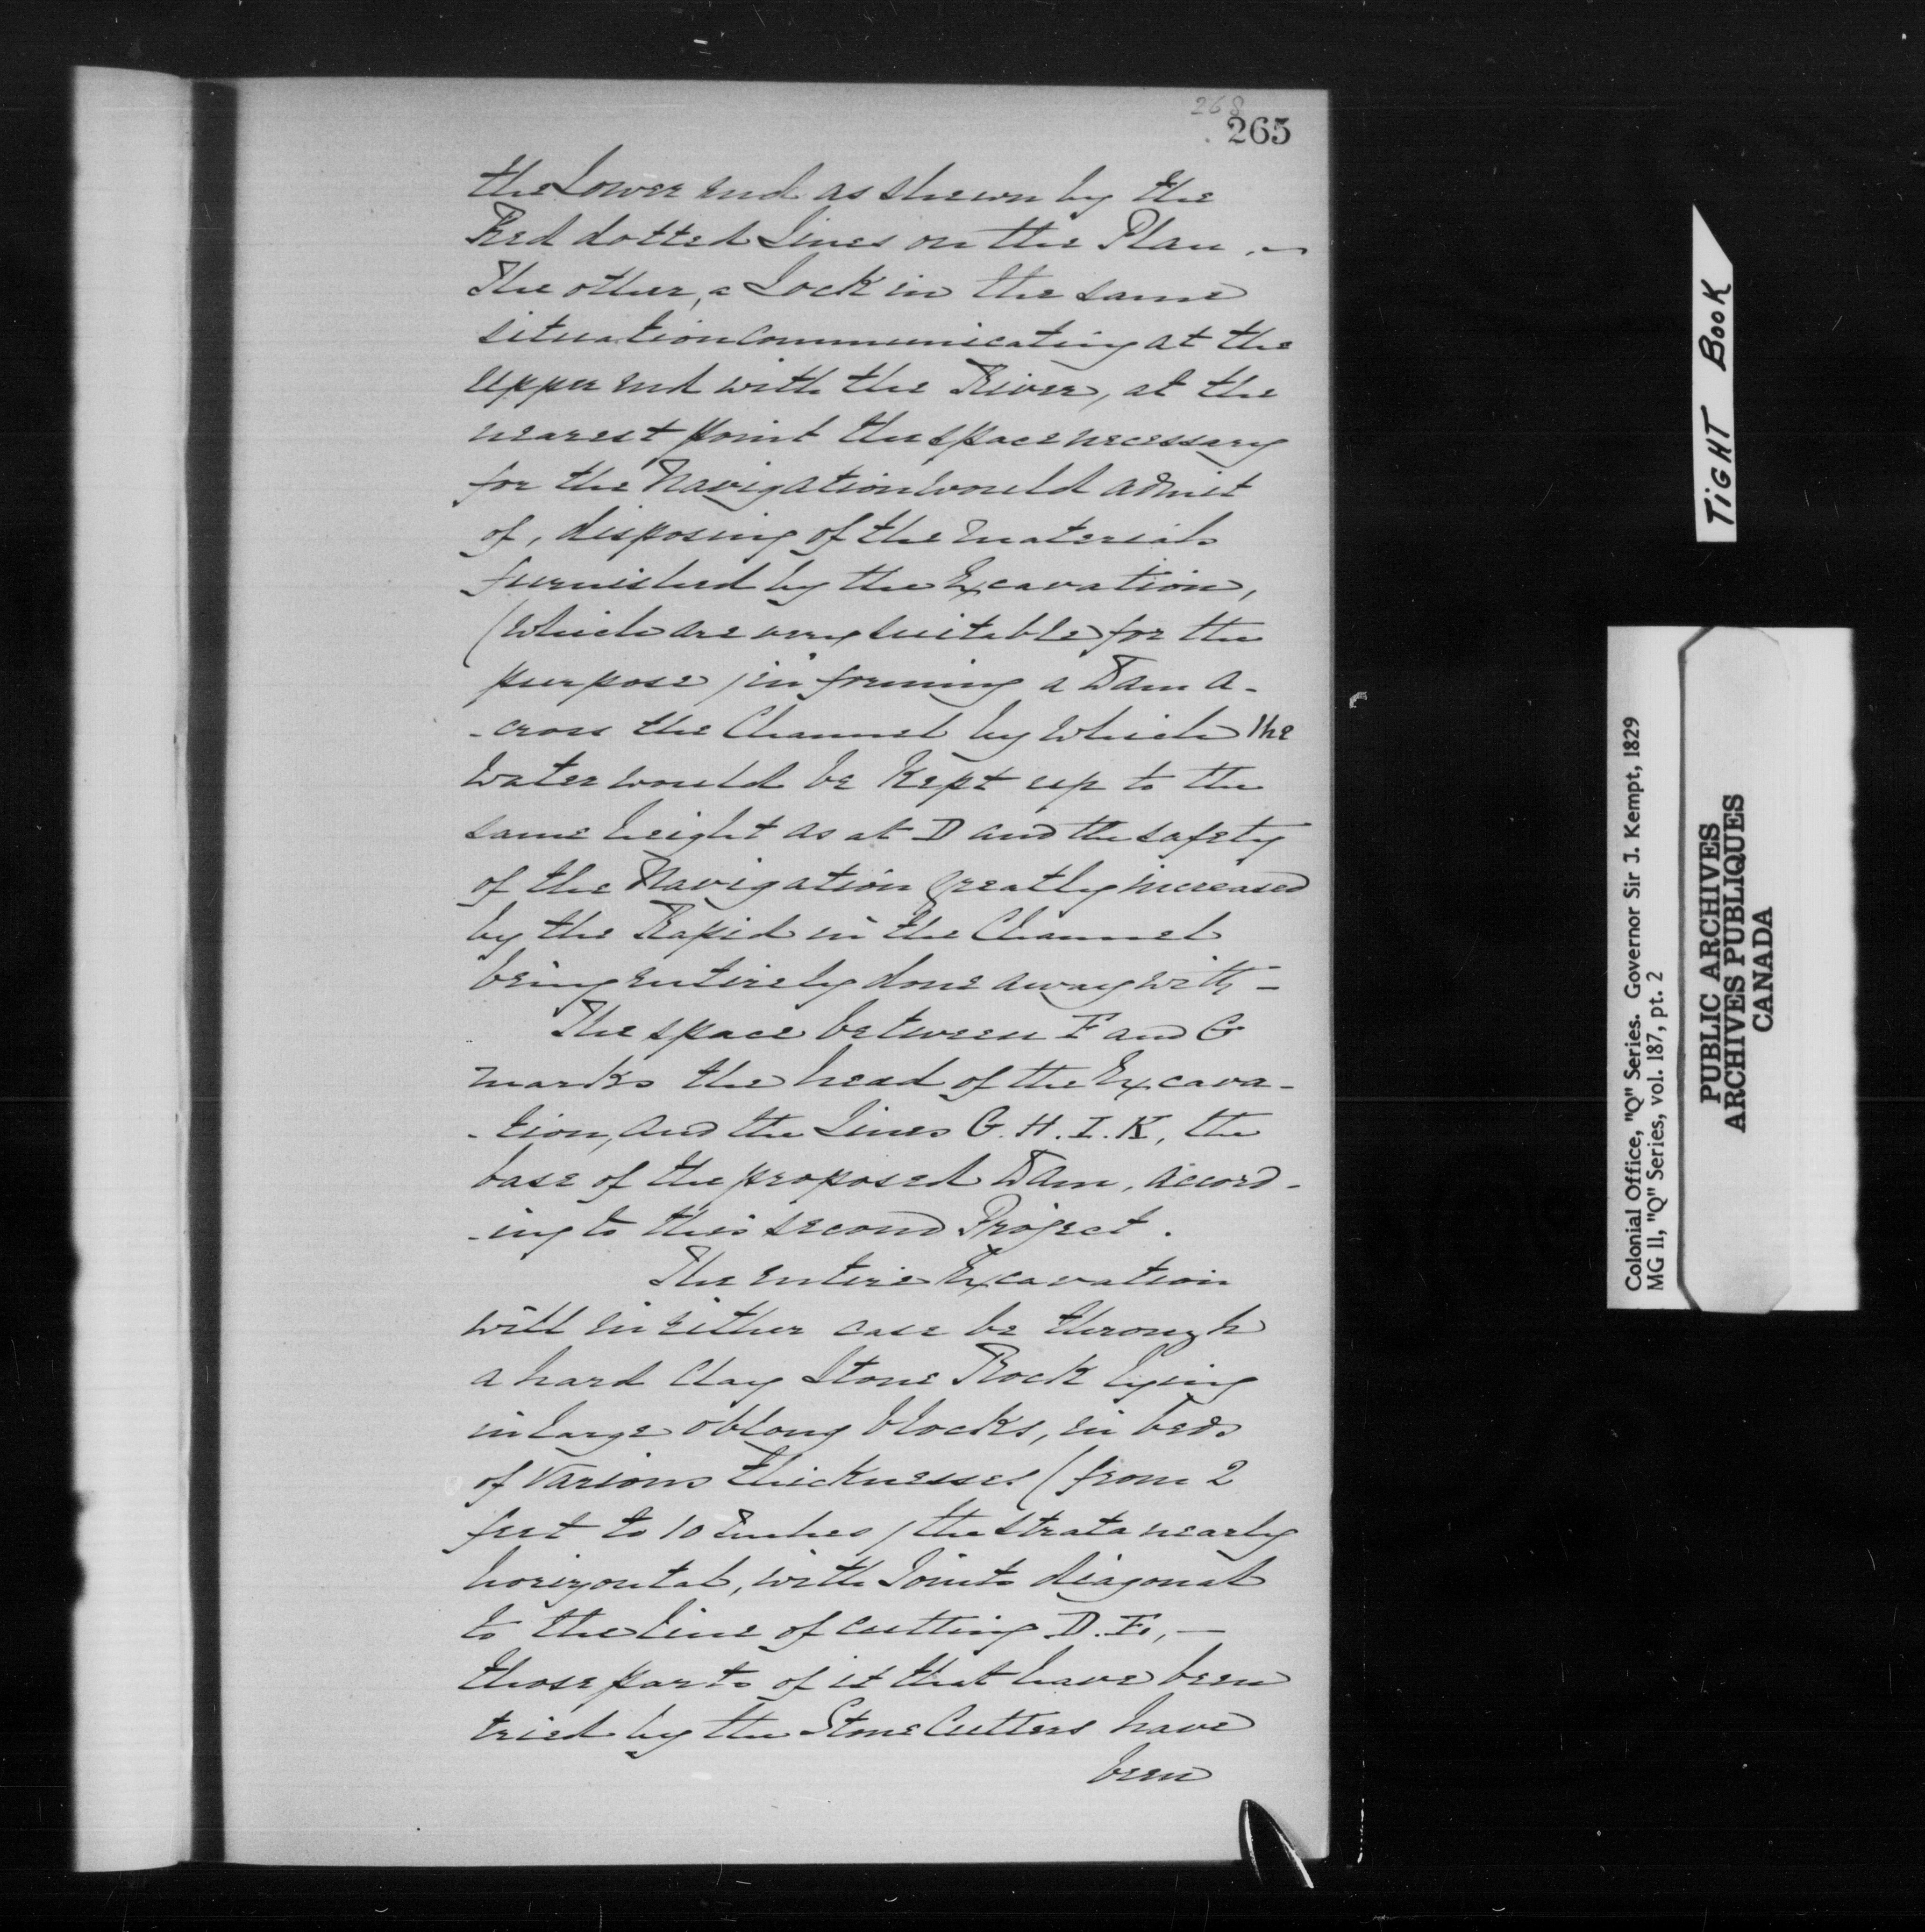 268
265
the Lower End as shewn by the
Red dotted Lines on the Plan. —
The other, a Lock in the same
situation communicating at the
upper End with the River, at the
nearest point the space necessary
for the Navigation would admit
of, disposing of the materials
furnished by the Excavation,
(which are very suitable for the
purpose) in forming a Dam a-
-cross the Channel by which the
water would be kept up to the
same height as at D and the safety
of the Navigation greatly increased
by the Rapid in the Channel
being entirely done away with —
The space between F and G
marks the head of the Excava-
-tion, and the Lines G. H. I. K, the
base of the proposed Dam, accord-
-ing to this second Project.
The entire Excavation
will in either case be through
a hard Clay Stone Rock lying
in large oblong blocks, in beds
of various thicknesses (from 2
feet to 10 Inches) the strata nearly
horizontal, with Joints diagonal
to the line of cutting D. F., —
those parts of it that have been
tried by the Stone Cutters have
been
TIGHT BOOK
Colonial Office, "Q" Series. Governor Sir J. Kempt, 1829
MG 11, "Q" Series, vol. 187, pt. 2
PUBLIC ARCHIVES
ARCHIVES PUBLIQUES
CANADA